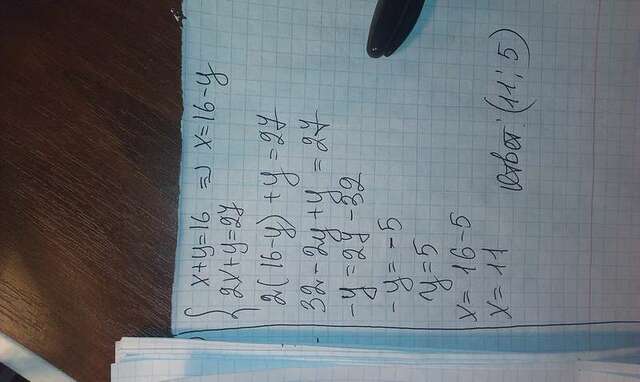 { x+y=16 => x=16-y
2x+y=27
2(16-y)+y=27
32-2y+y=27
-y=27-32
-y=-5
y=5
x=16-5
x=11
Ответ: (11; 5)